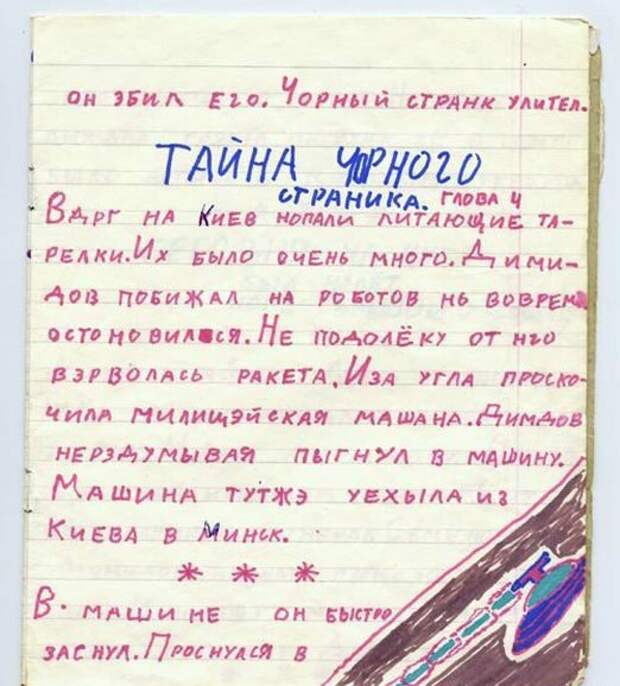 он эбил его. Чорный странк улител.
ТАЙНА ЧОРНОГО
СТРАНИКА. ГЛОВА 4
Вдрг на Киев нопали литающие та-
релки. Их было очень много. Дими-
дов побижал на роботов нь воврем
остоновился. Не подолёку от нго
взрволась ракета. Иза угла проско-
чила милищэйская машана. Димдов
нерздумывая пыгнул в машину.
Машина тутжэ уехыла из
Киева в Минск.
* * *
В. машине он быстро
заснул. Проснулся в